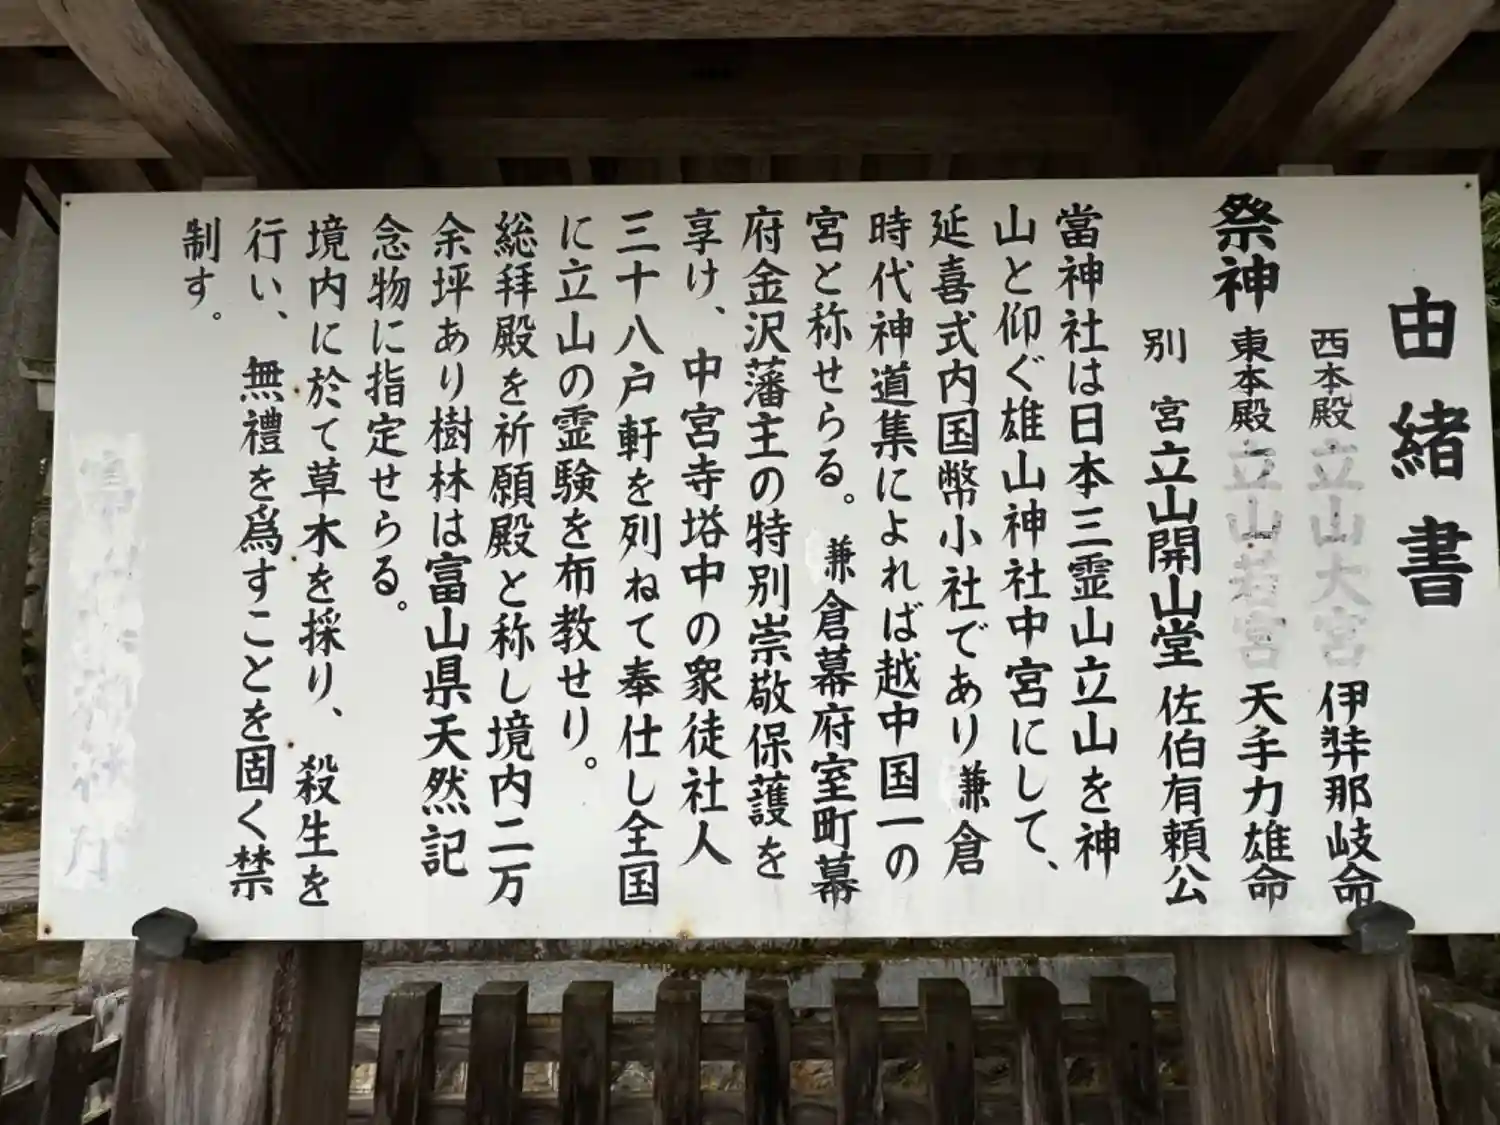 由緒書
西本殿 立山大宮 伊弉那岐命
祭神 東本殿 立山若宮 天手力雄命
別宮 立山開山堂 佐伯有頼公
當神社は日本三霊山立山を神
山と仰ぐ雄山神社中宮にして、
延喜式内国幣小社であり兼倉
時代神道集によれば越中国一の
宮と称せらる。兼倉幕府室町幕
府金沢藩主の特別崇敬保護を
享け、中宮寺塔中の衆徒社人
三十八戸軒を列ねて奉仕し全国
に立山の霊験を布教せり。
総拝殿を祈願殿と称し境内二万
余坪あり樹林は富山県天然記
念物に指定せらる。
境内に於て草木を採り、殺生を
行い、無禮を為すことを固く禁
制す。